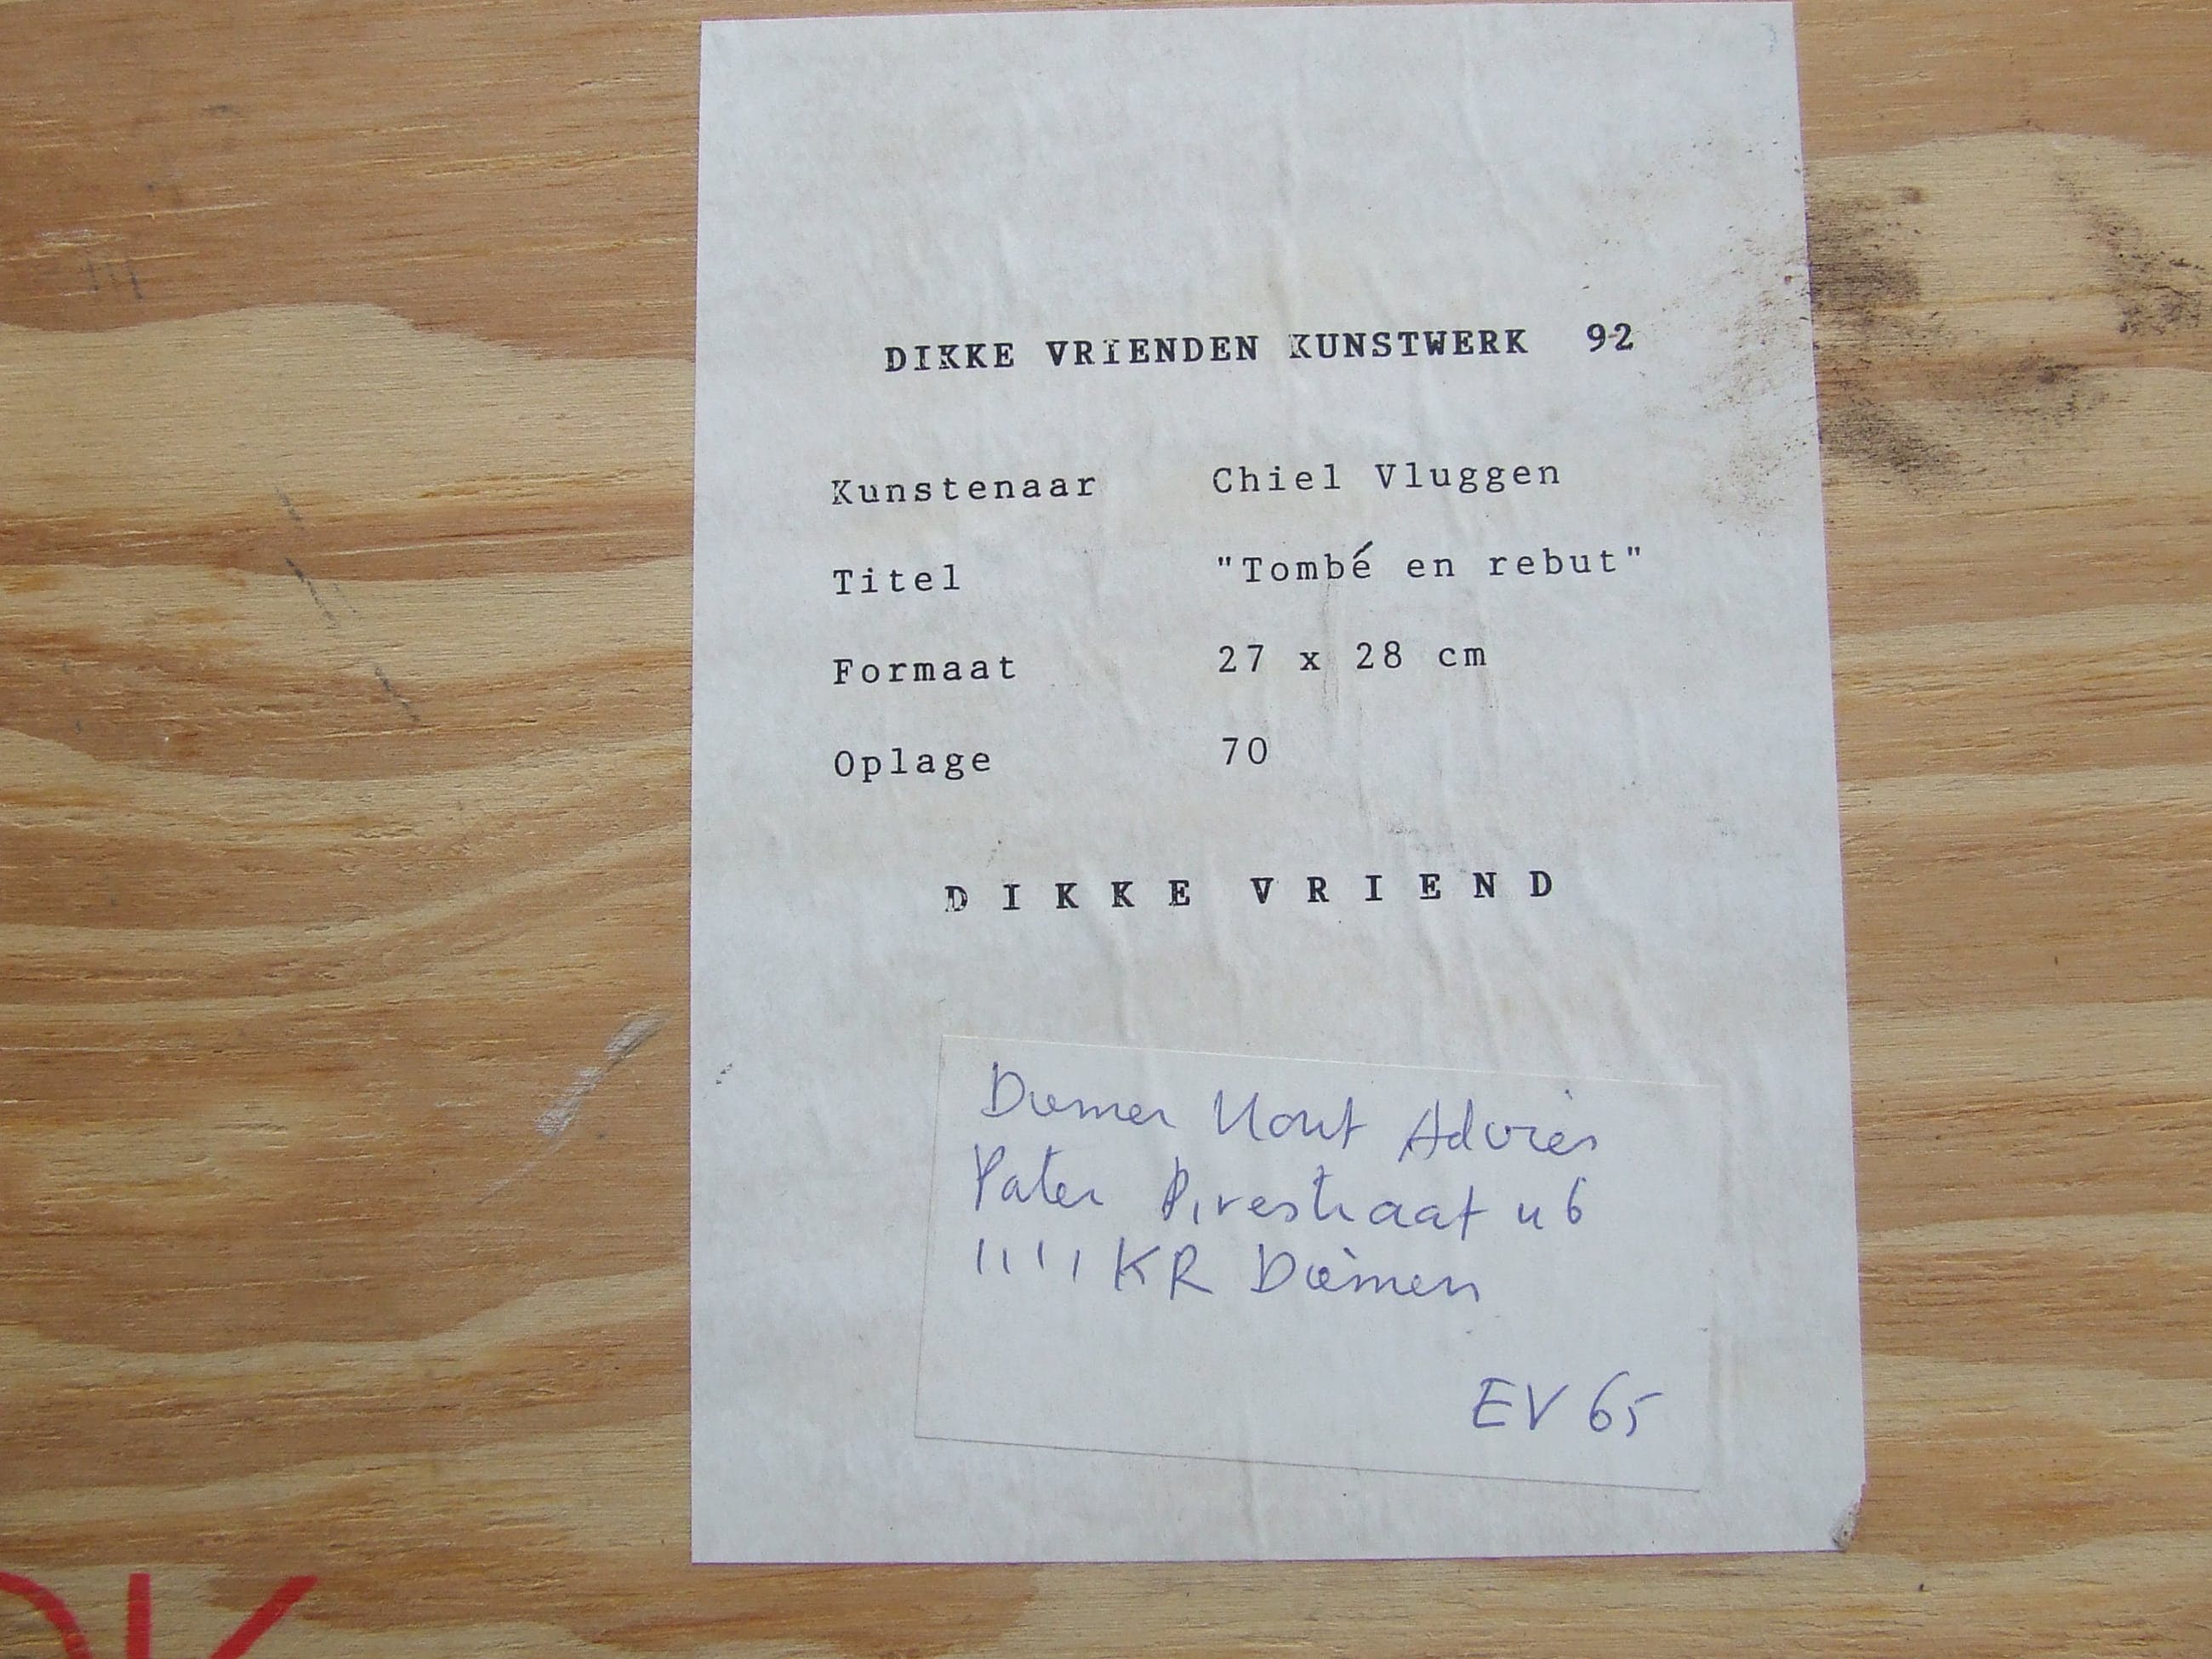 DIKKE VRIENDEN KUNSTWERK 92
Kunstenaar Chiel Vluggen
Titel "Tombé en rebut"
Formaat 27 x 28 cm
Oplage 70
DIKKE VRIEND
Diemer Hout Advies
Pater Pirestraat 46
1111 KR Diemen
EV 65